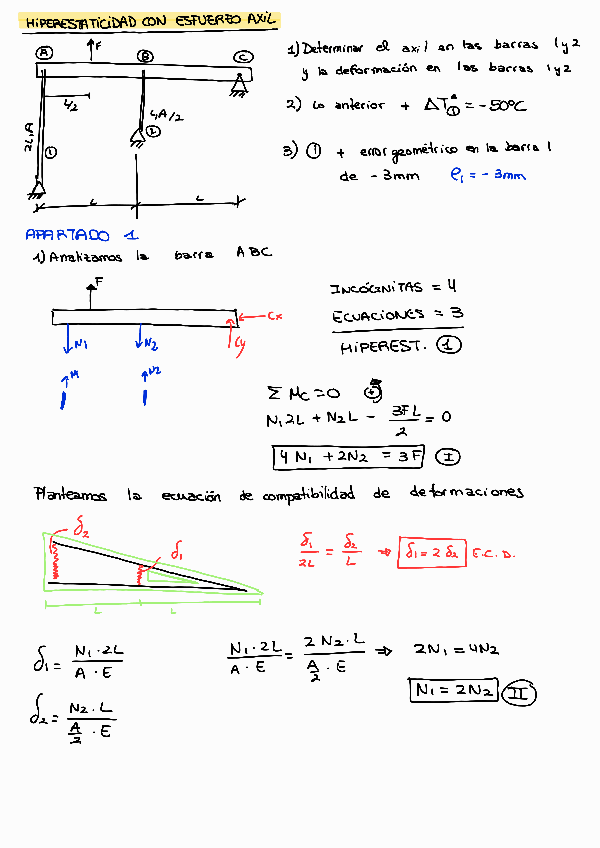 HIPERESTATICIDAD CON ESFUERZO AXIL
A
F
B
C
L/2
2L, A
L, A/2
1
2
L
L
1) Determinar el axil en las barras 1 y 2
y la deformación en las barras 1 y 2
2) Lo anterior + ΔT① = -50ºC
3) ① + error geométrico en la barra 1
de -3mm e₁ = -3mm
APARTADO 1
1) Analizamos la barra ABC
F
Cx
N1
N2
Cy
N1
N2
INCÓGNITAS = 4
ECUACIONES = 3
HIPEREST. ①
Σ Mc = 0 +
N₁2L + N₂L - 3FL/2 = 0
4N₁ + 2N₂ = 3F I
Planteamos la ecuación de compatibilidad de deformaciones
δ₂
δ₁
L
L
δ₁/2L = δ₂/L ⇒ δ₁ = 2δ₂ E.C.D.
δ₁ = N₁·2L / A·E
N₁·2L / A·E = 2N₂·L / A/2·E ⇒ 2N₁ = 4N₂
N₁ = 2N₂ II
δ₂ = N₂·L / A/2·E